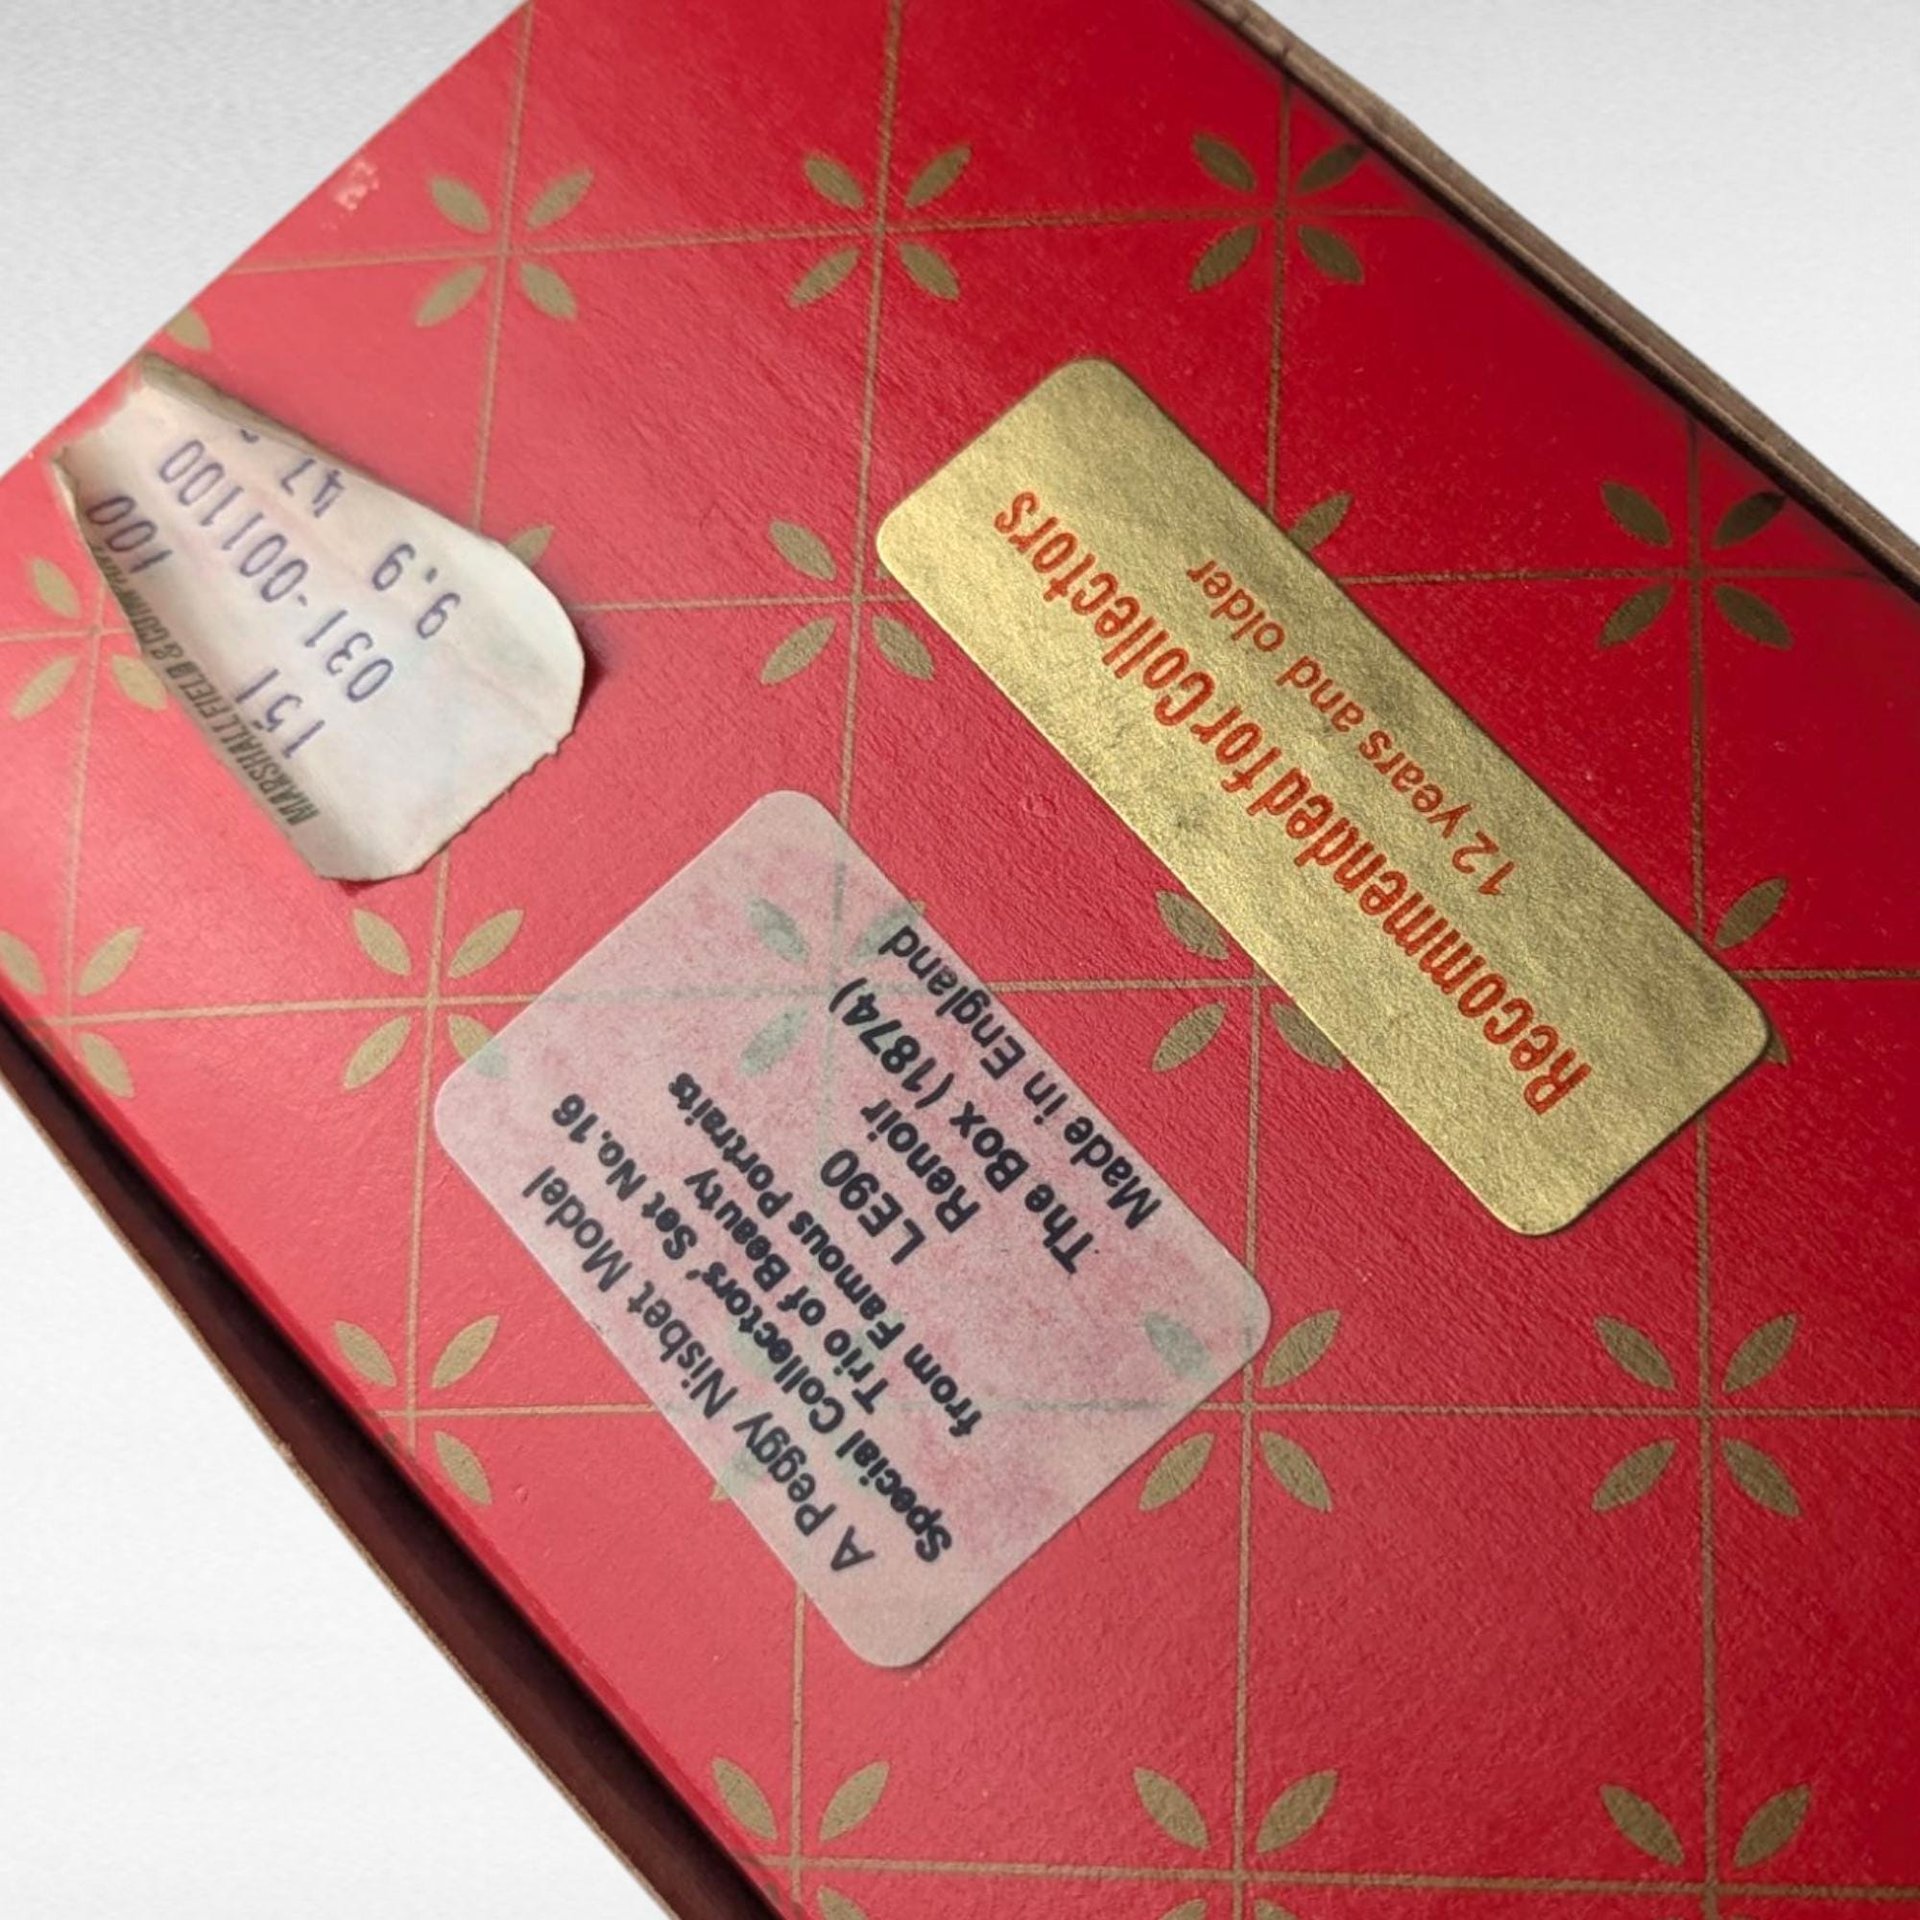 MARSHALL FIELD & COMPANY
151 100
031-001100
9.9 47
A Peggy Nisbet Model
Special Collectors' Set No.16
Trio of Beauty
from Famous Portraits
LE90
Renoir
The Box (1874)
Made in England
Recommended for Collectors
12 years and older